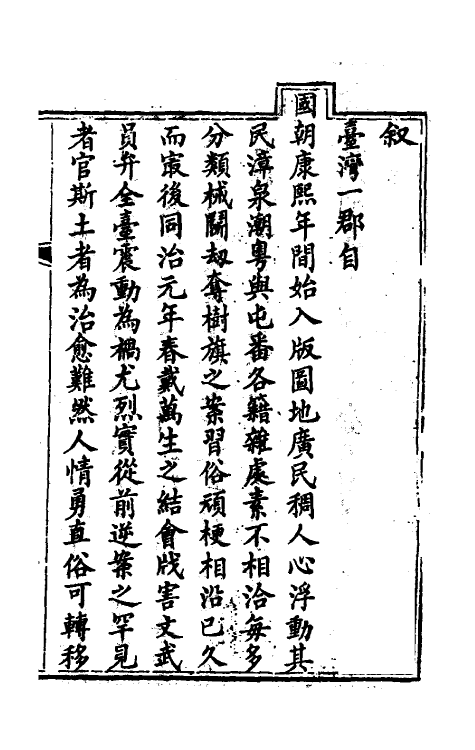 叙
臺灣一郡自
國朝康熙年間始入版圖地廣民稠人心浮動其
民漳泉潮粤與屯番各籍雜處素不相洽每多
分類械鬭刼奪樹旗之案習俗頑梗相沿已久
而㝡後同治元年春戴萬生之結會戕害文武
員弁全臺震動為禍尤烈實從前逆案之罕見
者官斯土者為治愈難然人情勇直俗可轉移